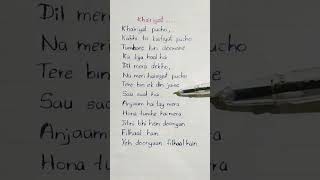 Khairiyat ....
Khairiyat pucho,
Kabhi to kaifiyat pucho
Tumhare bin deewane
Ka kya haal hai
Dil mera dekho,
Na meri haisiyat pucho
Tere bin ek din jaise
Sau saal hai
Anjaam hai tay mera
Hona tumhe hai mera
Jitni bhi hain dooriyan
Filhaal hain
Yeh dooriyan filhaal hain